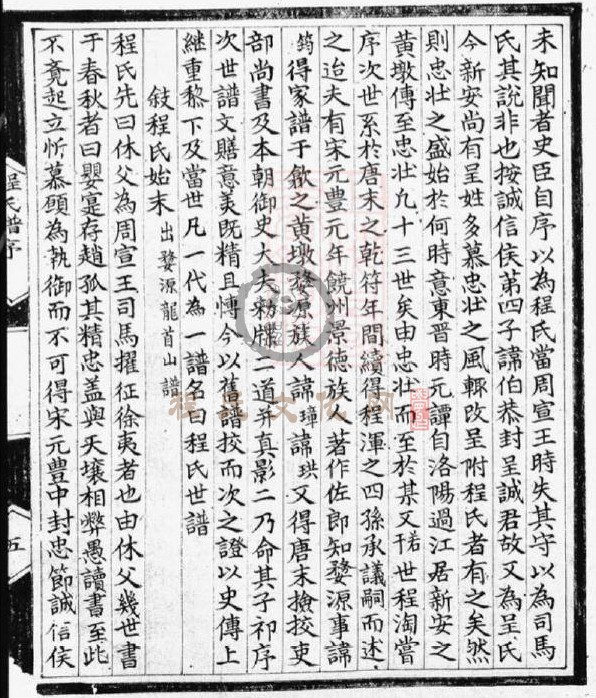 未知聞者史臣自序以為程氏當周宣王時失其守以為司馬
氏其說非也按誠信侯第四子諱伯恭封呈誠君故又為呈氏
今新安尚有呈姓多慕忠壯之風輒改呈附程氏者有之矣然
則忠壯之盛始於何時意東晋時元譚自洛陽過江居新安之
黄墩傳至忠壯九十三世矣由忠壯而至於某又若干世程淘嘗
序次世系於唐末之乾符年間續得程渾之四孫承議嗣而述
之迨夫有宋元豊元年饒州景德族人著作佐郎知婺源事諱
筠得家譜于歙之黄墩婺源族人諱璋諱珙又得唐末撿挍吏
部尚書及本朝御史大夫勅牒二道并真影二乃命其子祁序
次世譜文贍意美既精且愽今以舊譜挍而次之證以史傳上
継重黎下及當世凡一代為一譜名曰程氏世譜
敍程氏始末 出婺源龍首山譜
程氏先曰休父為周宣王司馬擢征徐夷者也由休父幾世書
于春秋者曰嬰寔存趙孤其精忠盖與天壤相弊愚讀書至此
不竟起立忻慕願為執御而不可得宋元豊中封忠節誠信侯
程氏譜序
五
程氏文化网